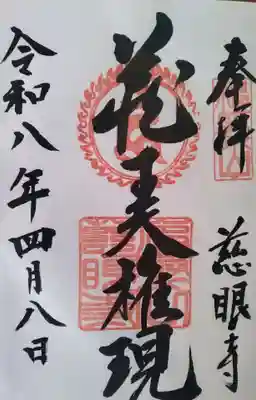 奉拝　慈眼寺
蔵王権現
令和八年四月八日